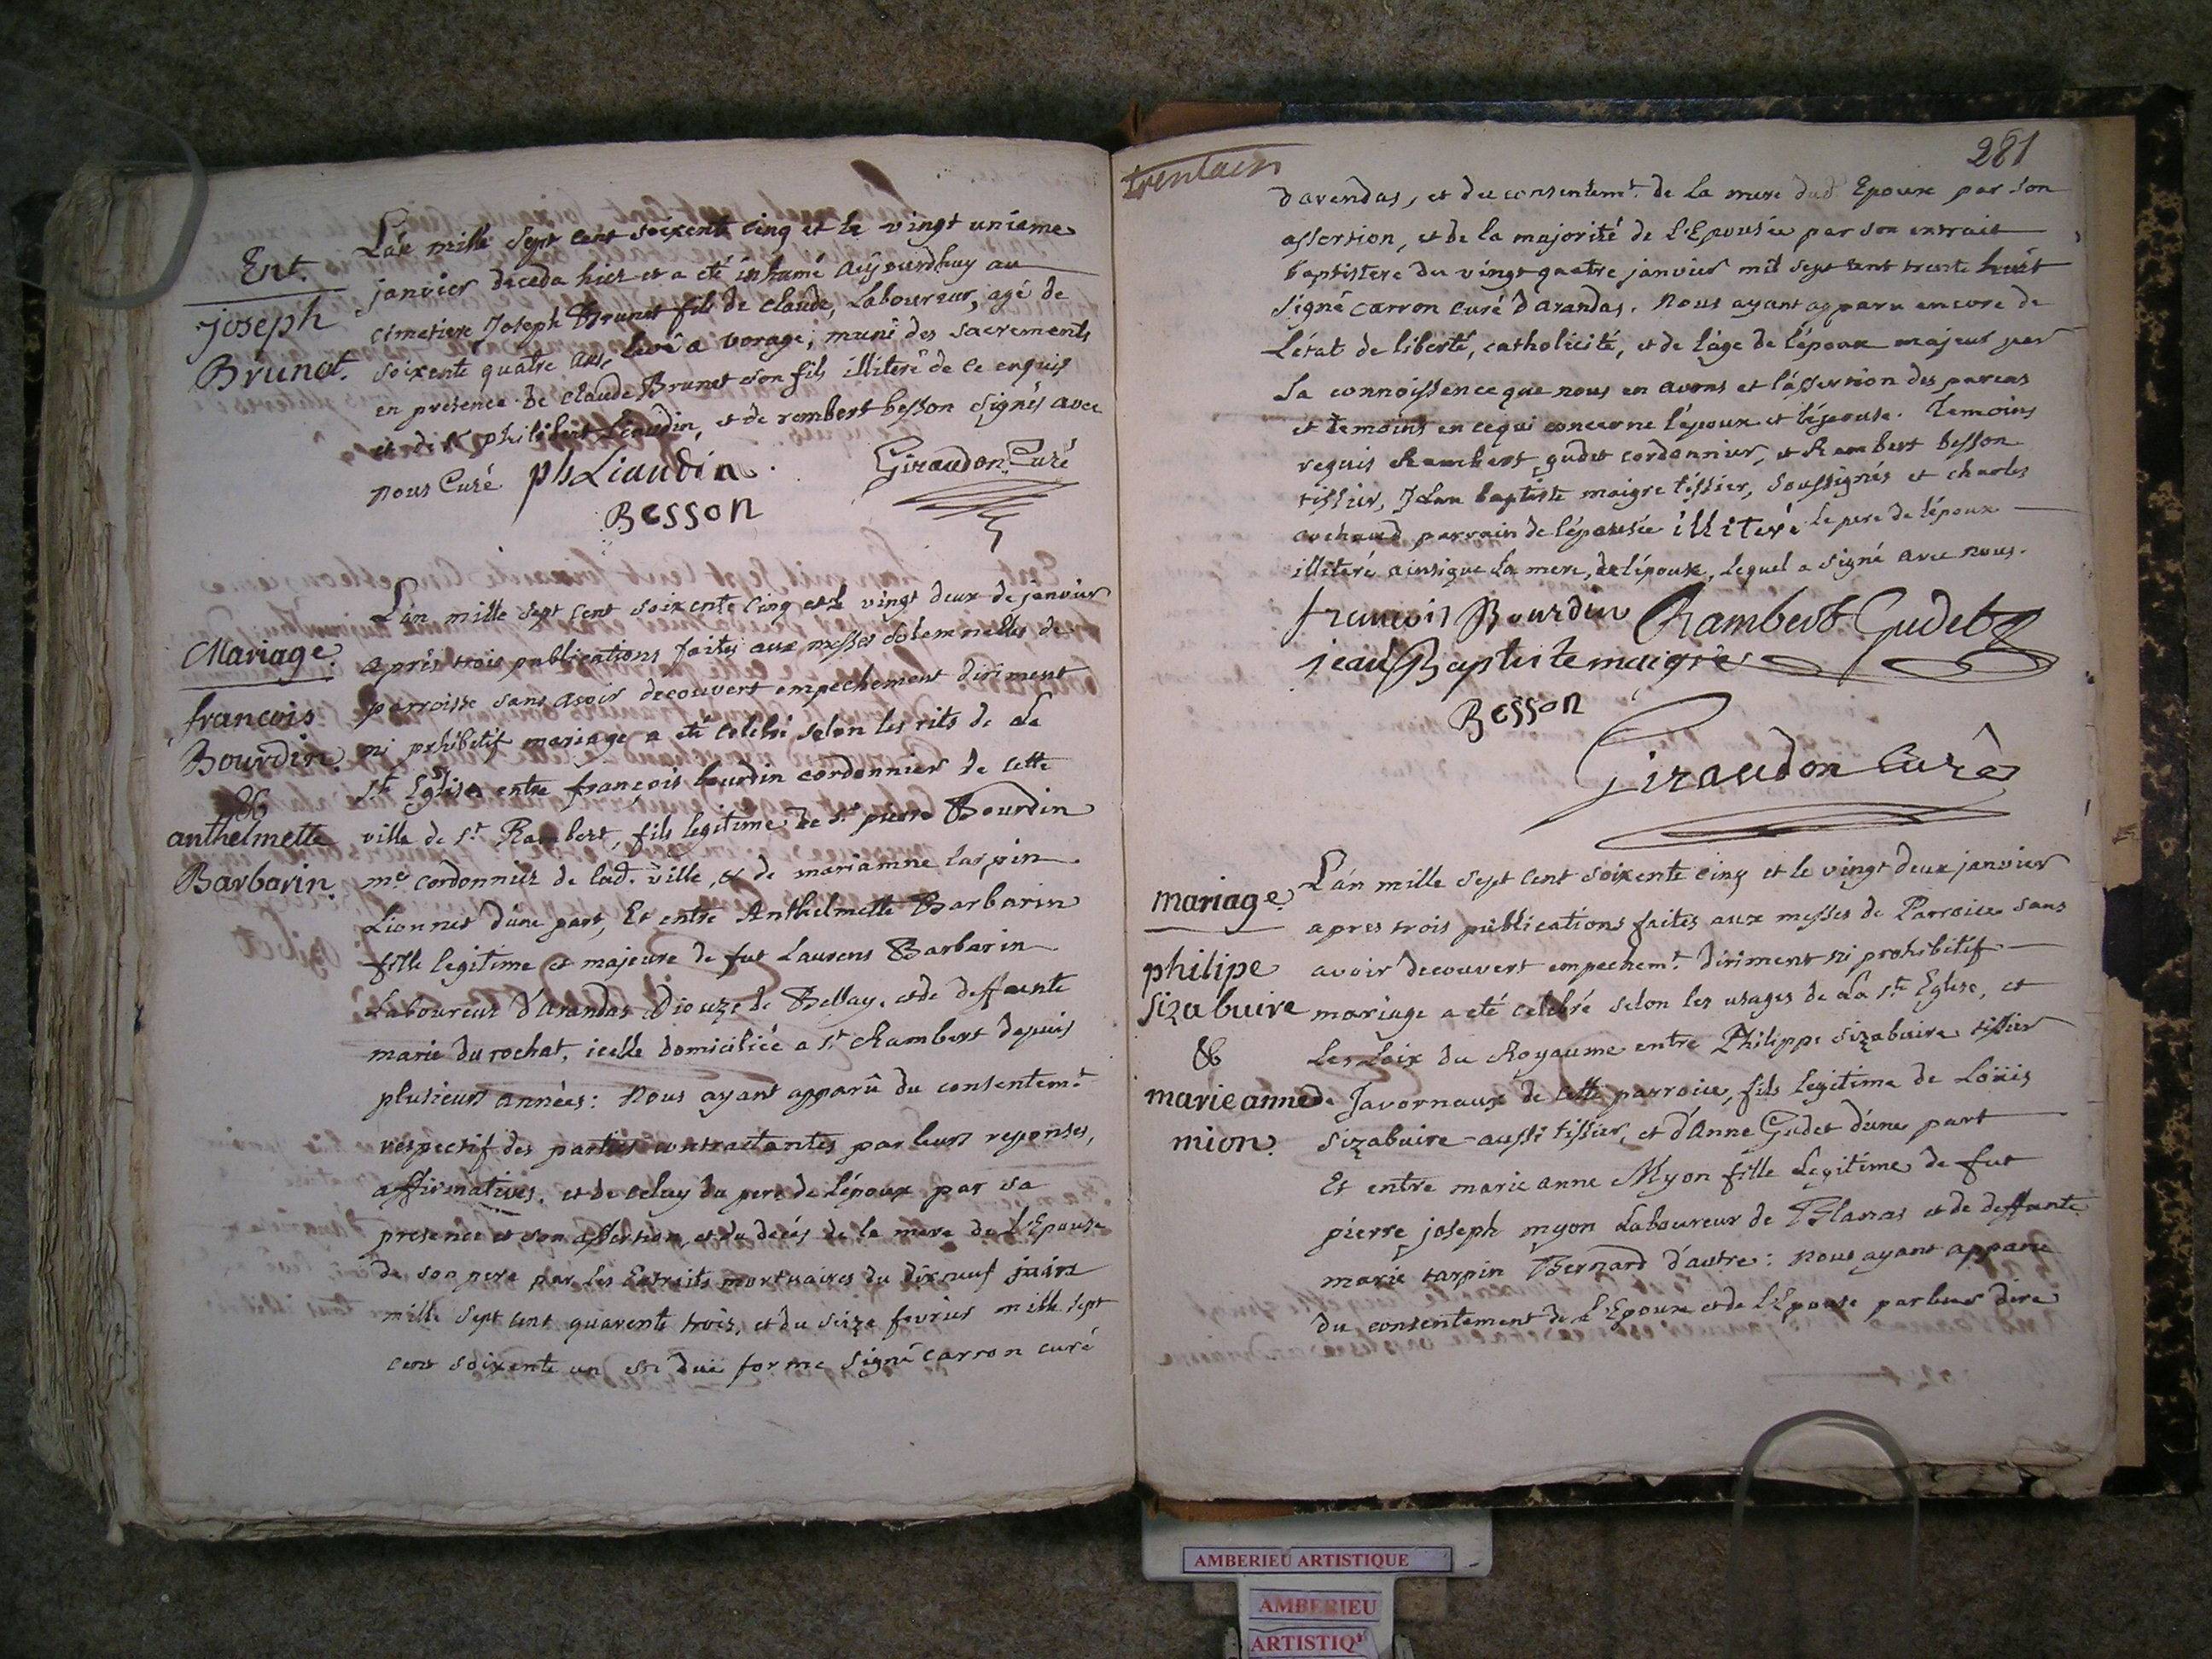 Ent.
joseph
Brunot.
L'an mille sept cent soixente cinq et le vingt unieme
janvier deceda hier et a eté inhumé aujourdhuy au
cimetiere Joseph Brunet fils de claude, Laboureur, agé de
soixente quatre ans levé a vorage; muni des sacrements
en presence de claude Brunet son fils illiteré de ce enquis
et de sr philibert Liaudin, et de rembert besson signés avec
nous Curé ph Liaudin Giraudon Curé
Besson
Mariage.
francois
Bourdin.
&
anthelmette
Barbarin.
L'an mille sept cent soixente cinq et le vingt deux de janvier
après trois publications faites aux messes solemnelles de
parroisse sans avoir decouvert empechement diriment
ni prhibetif mariage a eté celebré selon les rits de La
Ste Eglise entre françois bourdin cordonnier de cette
ville de St Rambert, fils legitime de sr pierre Bourdin
me cordonnier de lad. ville, & de mariamne tarpin
Lionnet d'une part, Et entre Anthelmette Barbarin
fille legitime et majeure de fut Laurens Barbarin
Laboureur d'Arandas Diouze de Bellay, et de deffunte
marie du rochat, icelle domiciliée a St Rambert depuis
plusieurs années: Nous ayant apparû du consentemt
respectif des parties contractantes par leurs reponses,
affirmatives. et de celuy du pere de l'époux par sa
presence et son assertion, et du decés de la mere de L'Epouse
de son pere par les Extraits mortuaires du dix neuf juin
mille sept cent quarente trois, et du seize fevrier mille sept
cent soixente un en duë forme signé carron curé
trentain
281
darendas, et du consentemt de la mere dud Epoux par son
assertion, et de la majorité de L'Epousée par son extrait
baptistere du vingt quatre janvier mil sept cent trente huit
signé carron curé d'arandas. Nous ayant apparu encore de
L'état de liberté, catholicité, et de l'âge de l'époux majeur par
la connoissence que nous en avons et l'assertion des parens
et temoins en ce qui concerne l'époux et l'épouse. Temoins
requis Rambert gudet cordonnier, et Rambert besson
tissier, Jean baptiste maigre tissier, soussignés et charles
cochaud parrain de l'épousée illiteré le pere de l'époux
illiteré ainsi que La mere, de l'époux, lequel a signé avec nous.
francois Bourdin Rambert Gudet
jean Baptiste maigre
Besson
Giraudon Curé
mariage.
philipe
sizabuire
&
marie anne
mion.
L'an mille sept cent soixente cinq et le vingt deux janvier
apres trois publications faites aux messes de Parroice sans
avoir decouvert empechemt diriment ni prohibitif
mariage a eté celebré selon les usages de La Ste Eglise, et
les Loix du Royaume entre Philippe sizabuire tissier
de Javornaux de cette parroice, fils legitime de Loüis
sizabuire aussi tissier, et d'Anne Gudet d'une part
Et entre marie anne Myon fille Legitime de fut
pierre joseph myon Laboureur de Blanas et de deffunte
marie tarpin Bernard d'autre: nous ayant apparu
du consentement de L'Epoux et de L'Epouse par leur dire
AMBERIEU ARTISTIQUE
AMBERIEU
ARTISTIQ